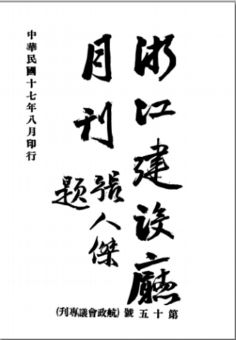 浙江建設廳
月刊
張人傑
題
中華民國十七年八月印行
第十五號(航政會議專刊)